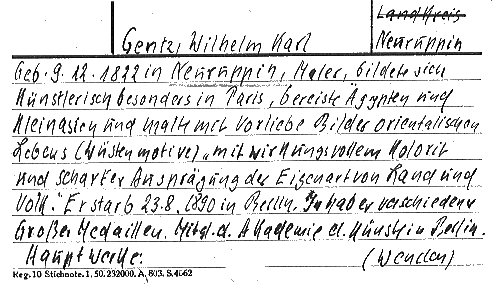 Landkreis
Gentz, Wilhelm Karl
Neuruppin
Geb. 9.12.1822 in Neuruppin, Maler, bildete sich
künstlerisch besonders in Paris, bereiste Ägypten und
Kleinasien und malte mit Vorliebe Bilder orientalischen
Lebens (Wüstenmotive) „mit wirkungsvollem Kolorit
und scharfer Ausprägung der Eigenart von Land und
Volk." Er starb 23.8.1890 in Berlin. Inhaber verschiedener
Großer Medaillen. Mitgl. d. Akademie d. Künste in Berlin.
Hauptwerke: (Wenden)
Reg. 10 Stichnote. 1, 50. 232000. A. 803. S. 4662